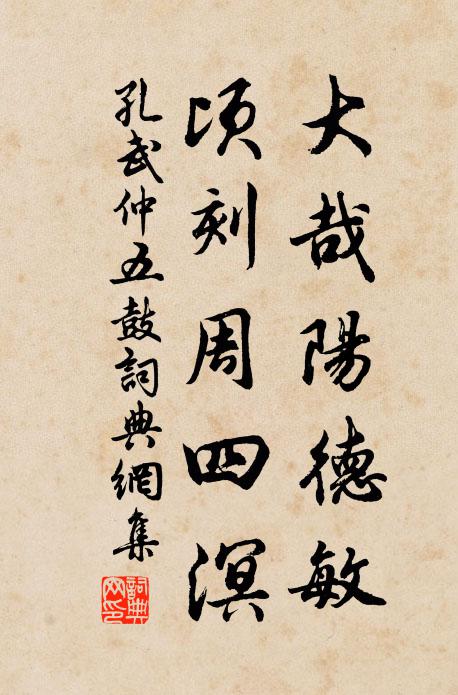 大哉陽德敏
頃刻周四溟
孔武仲五鼓詞典網集
詞典網印